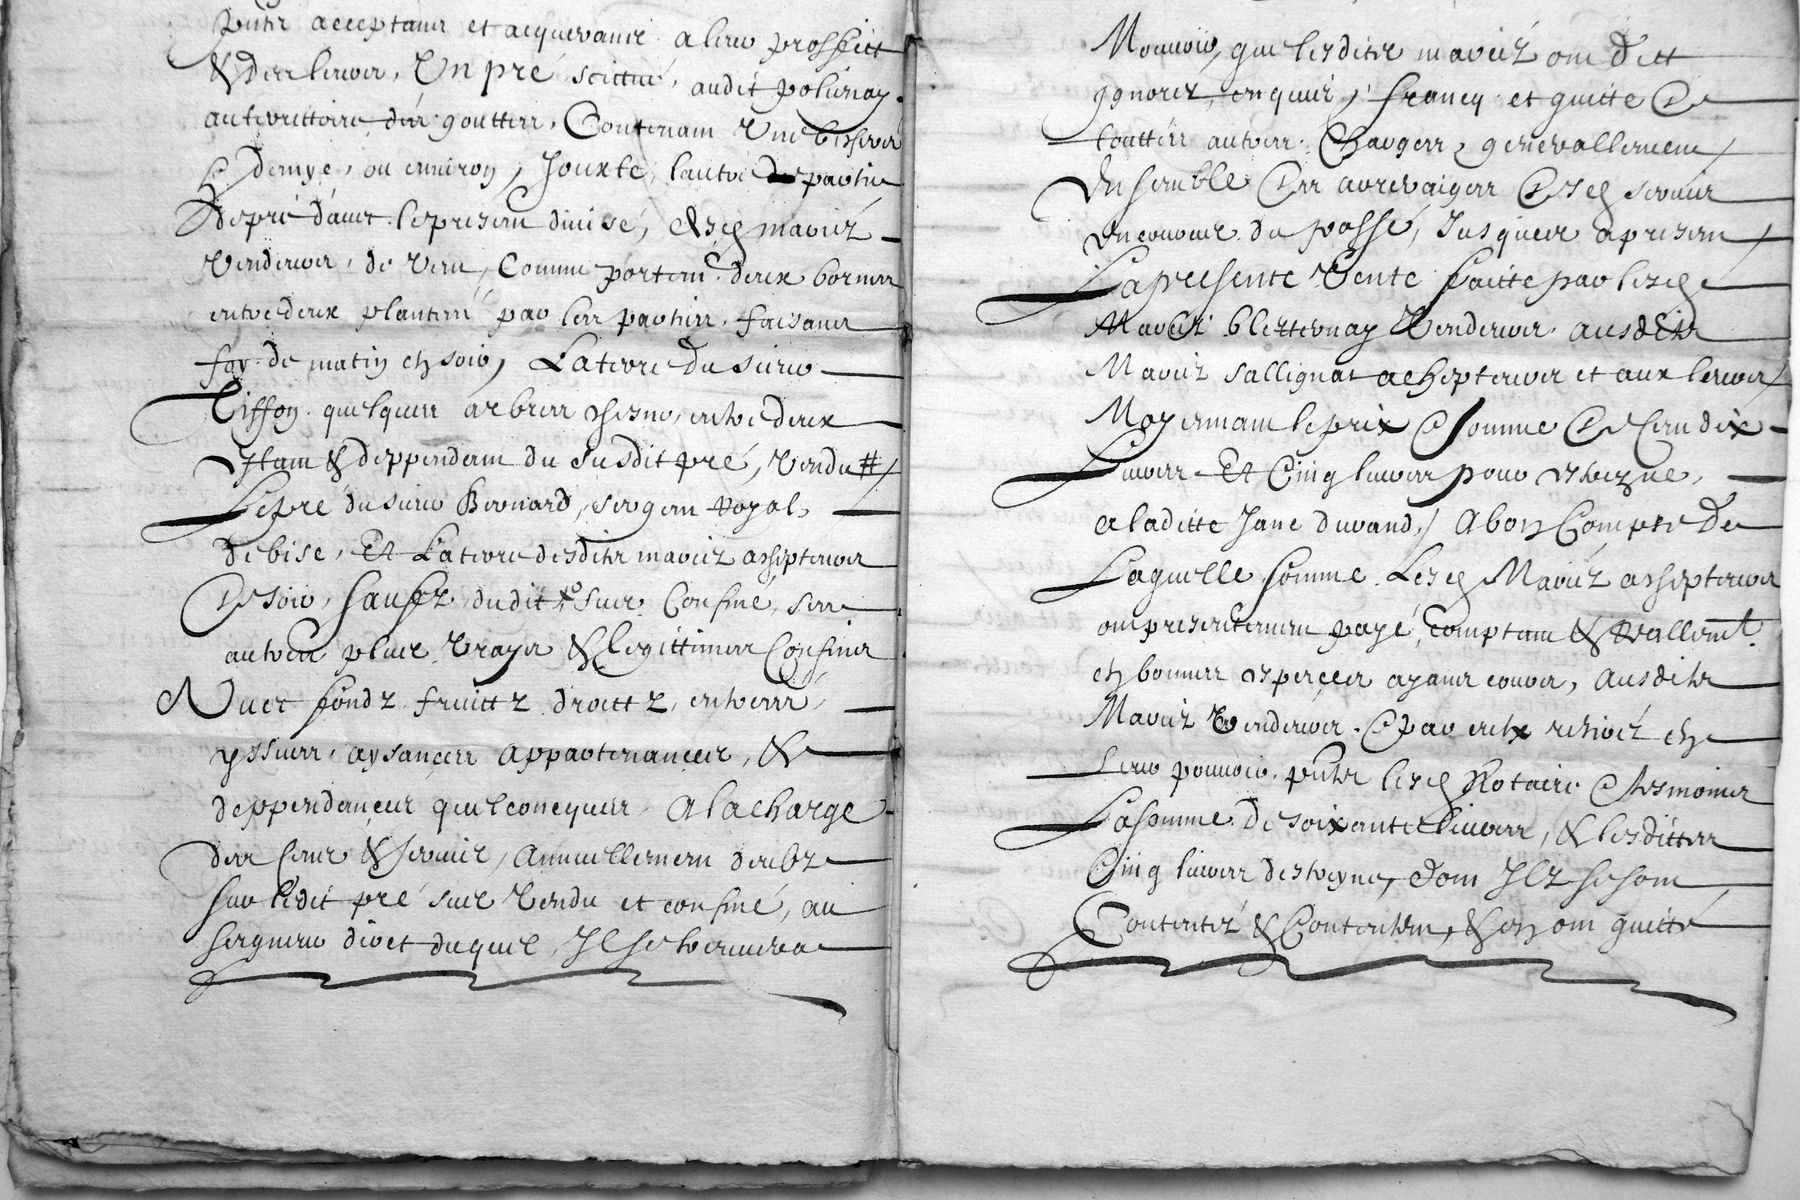 pntz acceptans et acquerans a leur proffict
& des leurs, Un pré scittué, audit polinay
au territoire des gouttes, Contenant Une bisheree
& demye, ou environ, Jouxte, lautre partie
de pré dans le present divisé, desd mariéz
Vendeurs, de Vent, Comme portent deux bornes
entredeux plantéz par les parties, faisans
foy de matin et soir, La terre du sieur
Tiffon quelques arbres chesne, entredeux
estant & deppendant du susdit pré, Vendu #
Le pre du sieur Bernard, sergent Royal
de bise, Et La terre desditz mariéz achepteurs
De soir, sauf dudit pré sus Confiné, ses
autres plus Vrays & legittimes Confins
Avec fondz fruittz droittz, entrees,
yssues, aysances appartenances, &
deppendances quelconcques, A la charge
des Cens & servis, Annuellement deubz
sur ledit pré sus Vendu et confiné, au
seigneur direct duquel, Il se treuvera
Mouvoir, que lesditz mariéz ont dict
ignorer, enquis, francq et quitte De
touttes autres Charges, generallement
Ensemble Des arreraiges Desd servis
Encourus du passé, Jusques a present
La presente Vente faitte par lesd
Mariéz bletternay Vendeurs ausditz
Mariéz sallignat achepteurs et aux leurs
Moyennant le prix & somme De Cent dix
Livres Et Cinq livres pour estreyne,
a laditte Jane durand, A bon Compte De
Laquelle somme Lesd Mariéz achepteurs
ont presentement payé, comptant & reallemt
en bonnes espesces ayans cours, Ausditz
Mariéz Vendeurs & par eulx retirés en
leur pouvoir, pntz lesd Notaire & tesmoins
La somme de soixante livres, & lesdittes
Cinq livres destreyne, dont Ilz se sont
Contentéz & Contentent, & en ont quitté